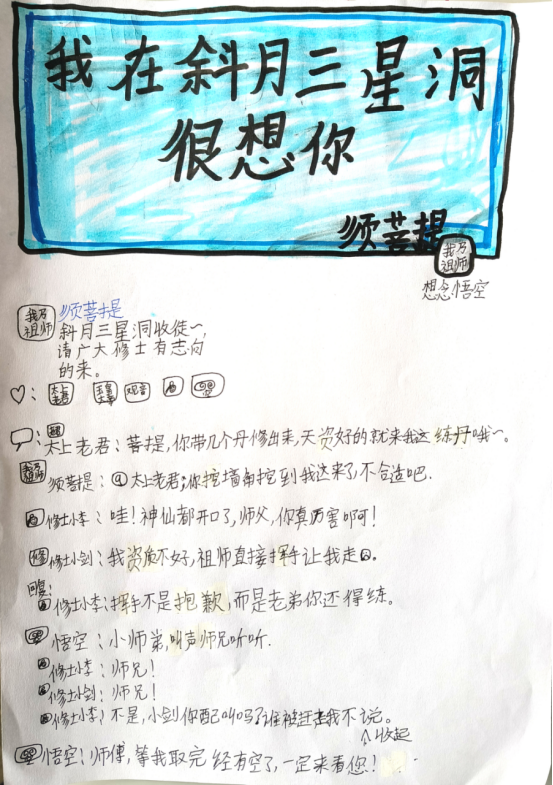 我在斜月三星洞
很想你
须菩提
我乃
祖师
想念悟空
我乃
祖师
须菩提
斜月三星洞收徒~,
请广大修士有志向
的来。
太上
老君
观音
太上老君:菩提,你带几个丹修出来,天资好的就来我这练丹哦~。
我乃
祖师
须菩提:@太上老君;你挖墙角挖到我这来了,不合适吧.
修士小李:哇!神仙都开口了,师父,你真厉害啊!
修士小剑:我资质不好,祖师直接挥手让我走。
回复:
修士小李:挥手不是抱歉,而是老弟你还得练。
悟空:小师弟,叫声师兄听听.
修士小李:师兄!
修士小剑:师兄!
修士小李:不是,小剑你配叫吗?谁被赶走我不说。
↑收起
悟空:师傅,等我取完经有空了,一定来看您!